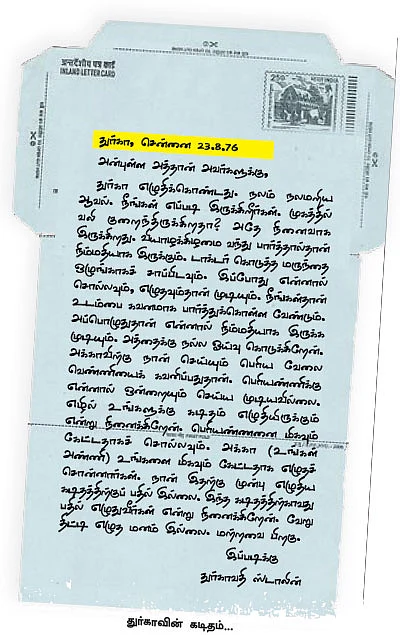 अन्तर्देशीय पत्र कार्ड
INLAND LETTER CARD
250 भारत INDIA
துர்கா, சென்னை 23.8.76
அன்புள்ள அத்தான் அவர்களுக்கு,
துர்கா எழுதிக்கொண்டது. நலம் நலமறிய
ஆவல். நீங்கள் எப்படி இருக்கிறீர்கள். முகத்தில்
வலி குறைந்திருக்கிறதா? அதே நினைவாக
இருக்கிறது. வியாழக்கிழமை வந்து பார்த்தால்தான்
நிம்மதியாக இருக்கும். டாக்டர் கொடுத்த மருந்தை
ஒழுங்காகச் சாப்பிடவும். இப்போது என்னால்
சொல்லவும், எழுதவும்தான் முடியும். நீங்கள்தான்
உடம்பை கவனமாக பார்த்துக்கொள்ள வேண்டும்.
அப்பொழுதுதான் என்னால் நிம்மதியாக இருக்க
முடியும். அத்தைக்கு நல்ல ஓய்வு கொடுக்கிறேன்.
அக்காவிற்கு நான் செய்யும் பெரிய வேலை
வெண்ணியைக் கவனிப்பதுதான். பெரியண்ணிக்கு
என்னால் ஒன்றையும் செய்ய முடியவில்லை.
எழில் உங்களுக்கு கடிதம் எழுதியிருக்கும்
என்று நினைக்கிறேன். பெரியண்ணனை மிகவும்
கேட்டதாகச் சொல்லவும். அக்கா (உங்கள்
அண்ணி) உங்களை மிகவும் கேட்டதாக எழுதச்
சொன்னார்கள். நான் இதற்கு முன்பு எழுதிய
கடிதத்திற்குப் பதில் இல்லை. இந்த கடிதத்திற்காவது
பதில் எழுதுவீர்கள் என்று நினைக்கிறேன். வேறு
திட்டி எழுத மனம் இல்லை. மற்றவை பிறகு.
இப்படிக்கு
துர்காவதி ஸ்டாலின்
துர்காவின் கடிதம்...